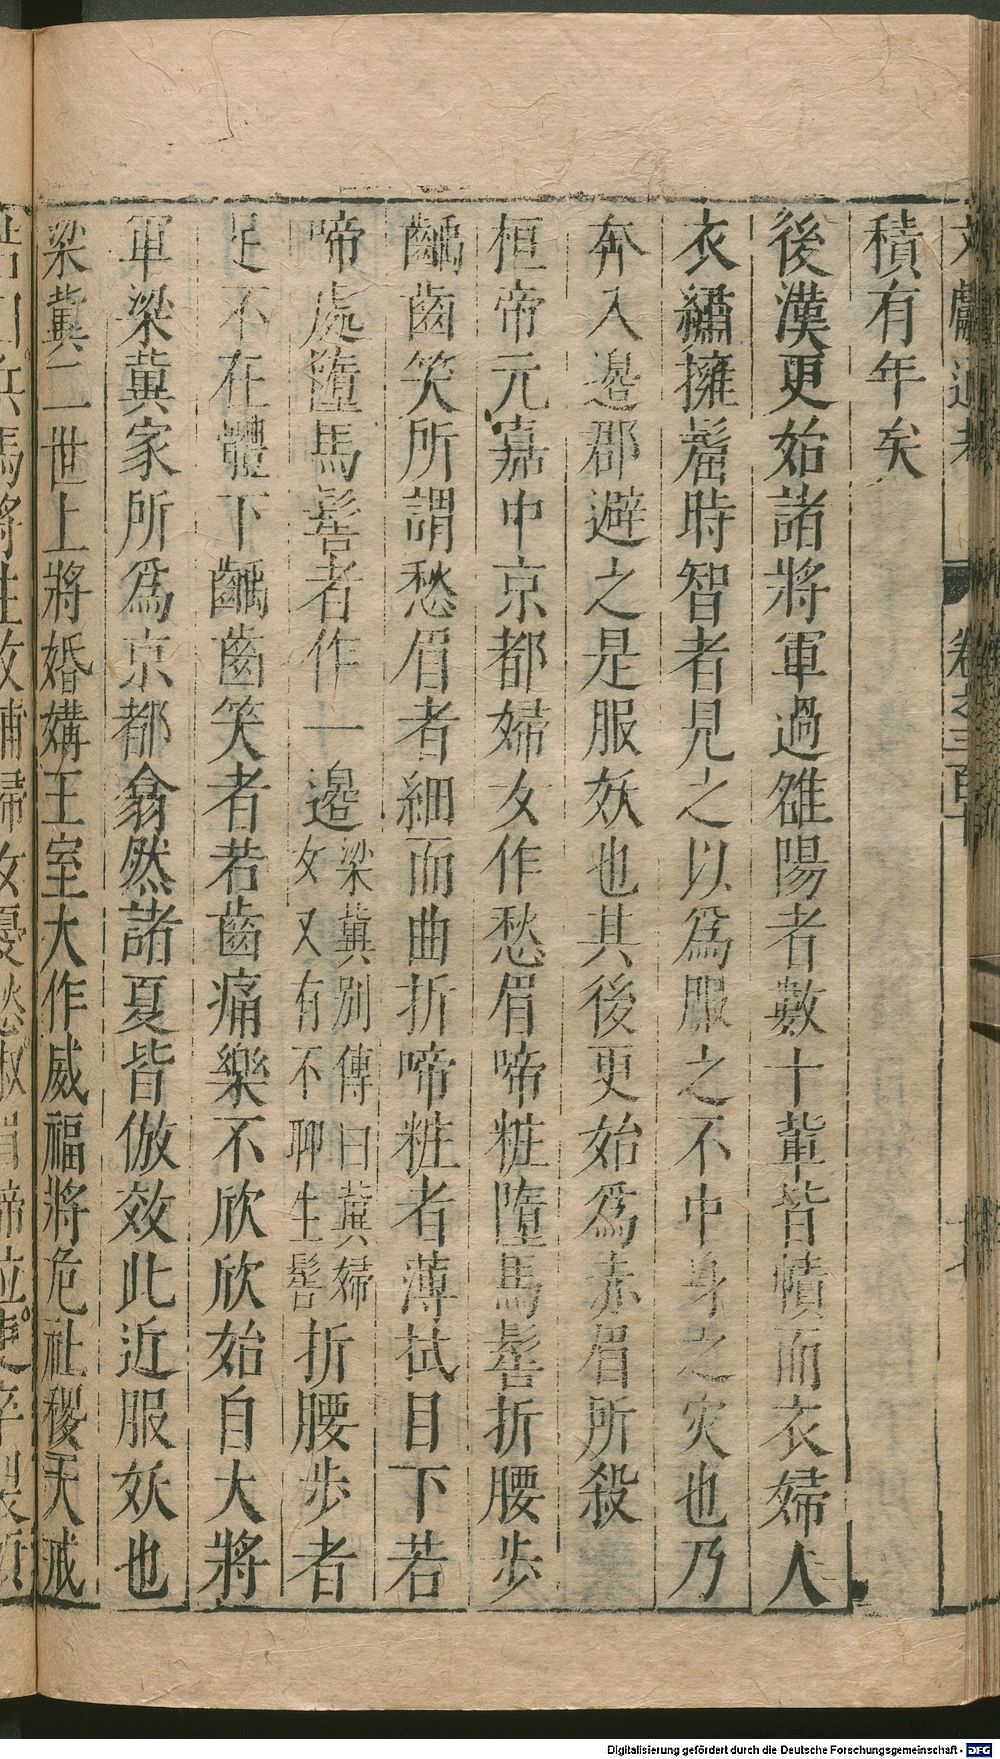 文獻通考 卷之三百十
積有年矣
後漢更始諸將軍過雒陽者數十輩皆幘而衣婦人
衣繡擁髷時智者見之以爲服之不中身之灾也乃
奔入邉郡避之是服妖也其後更始爲赤眉所殺
桓帝元嘉中京都婦女作愁眉啼粧墮馬髻折腰步
齲齒笑所謂愁眉者細而曲折啼粧者薄拭目下若
啼處墮馬髻者作一邉梁冀別傳曰冀婦女又有不聊生髻折腰步者
足不在體下齲齒笑者若齒痛樂不欣欣始自大將
軍梁冀家所爲京都翕然諸夏皆倣效此近服妖也
梁冀二世上將婚媾王室大作威福將危社稷天戒
兵馬將往收捕婦女憂愁
Digitalisierung gefördert durch die Deutsche Forschungsgemeinschaft - DFG